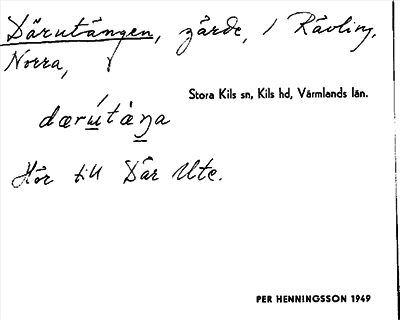 Därutängen, gärde, / Rävling,
Norra,
Stora Kils sn, Kils hd, Värmlands län.
dærútàŋa
Hör till Där Ute.
PER HENNINGSSON 1949